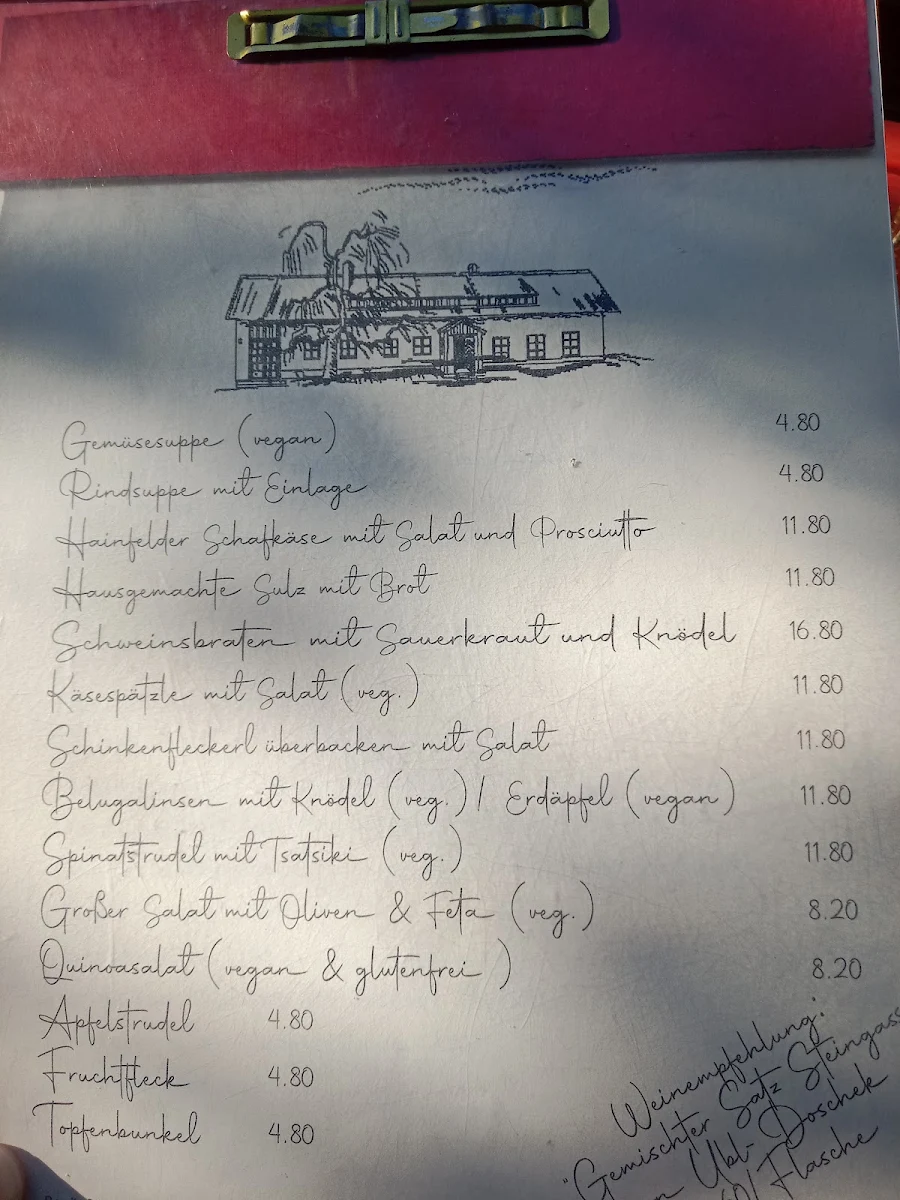 Gemüsesuppe (vegan) 4.80
Rindsuppe mit Einlage 4.80
Hainfelder Schafkäse mit Salat und Prosciutto 11.80
Hausgemachte Sulz mit Brot 11.80
Schweinsbraten mit Sauerkraut und Knödel 16.80
Käsespätzle mit Salat (veg.) 11.80
Schinkenfleckerl überbacken mit Salat 11.80
Belugalinsen mit Knödel (veg.) / Erdäpfel (vegan) 11.80
Spinatstrudel mit Tsatsiki (veg.) 11.80
Großer Salat mit Oliven & Feta (veg.) 8.20
Quinoasalat (vegan & glutenfrei) 8.20
Apfelstrudel 4.80
Fruchtfleck 4.80
Topfenbunkel 4.80
Weinempfehlung:
"Gemischter Satz Steingass
Übl-Doschek
Flasche